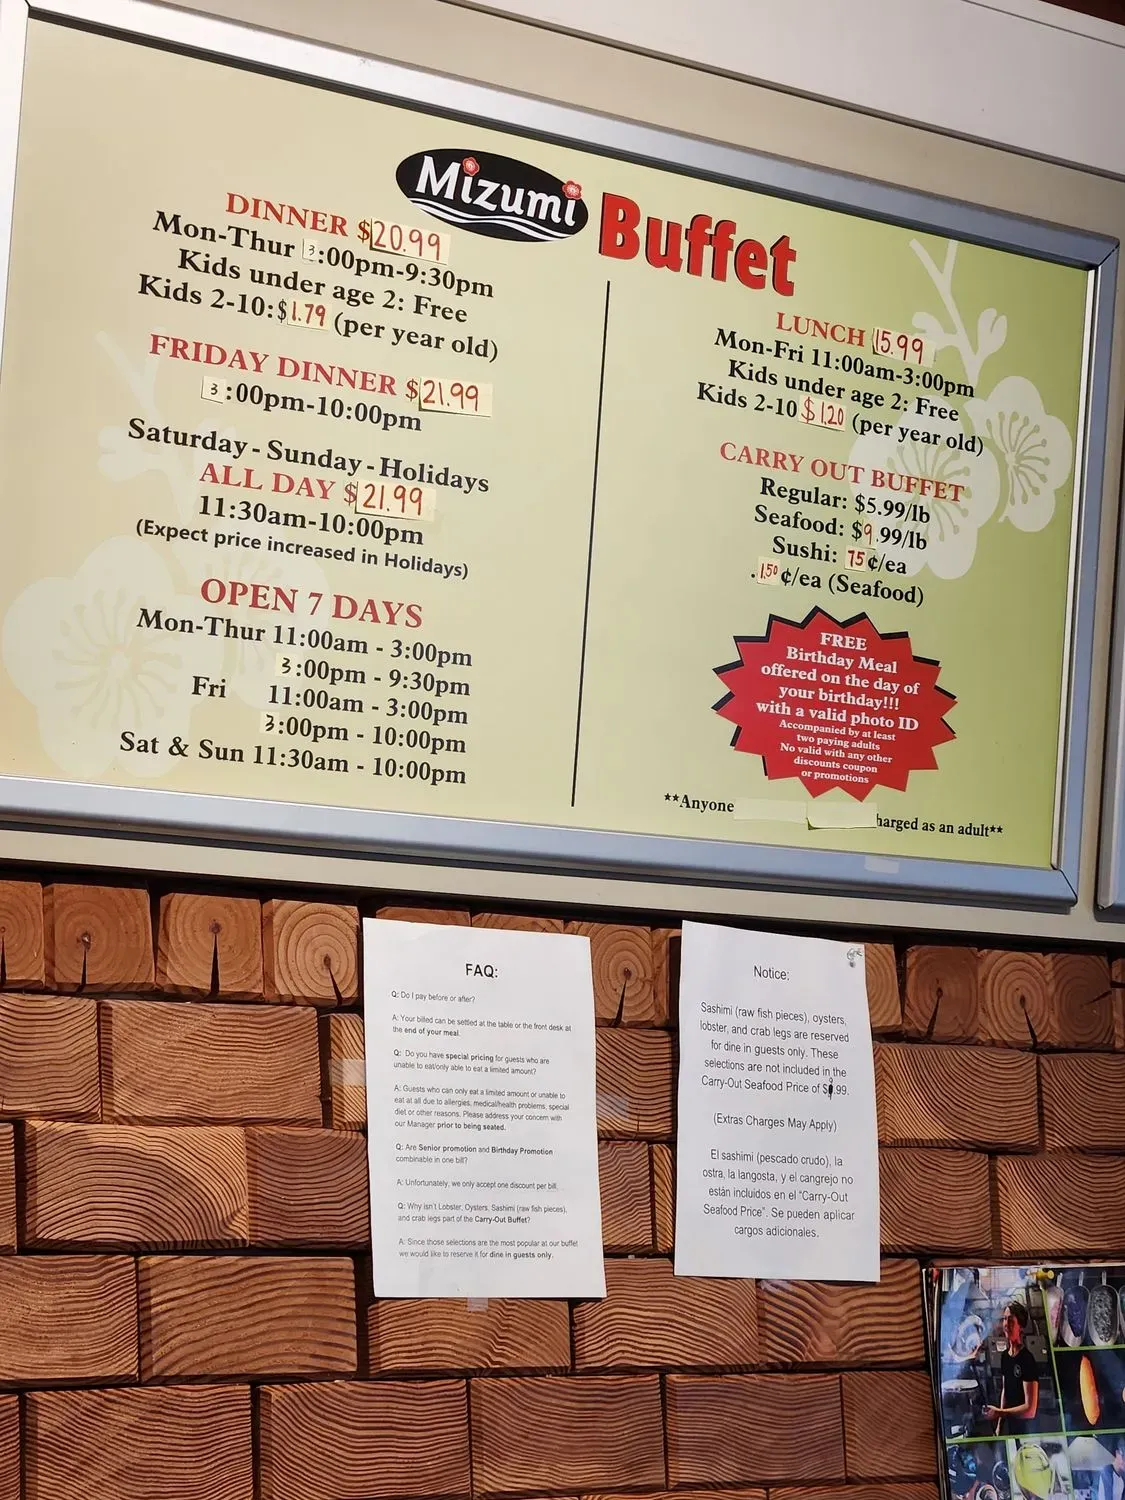 Mizumi Buffet
DINNER $20.99
Mon-Thur 3:00pm-9:30pm
Kids under age 2: Free
Kids 2-10:$1.79 (per year old)
FRIDAY DINNER $21.99
3:00pm-10:00pm
Saturday - Sunday - Holidays
ALL DAY $21.99
11:30am-10:00pm
(Expect price increased in Holidays)
OPEN 7 DAYS
Mon-Thur 11:00am - 3:00pm
3:00pm - 9:30pm
Fri 11:00am - 3:00pm
3:00pm - 10:00pm
Sat & Sun 11:30am - 10:00pm
LUNCH 15.99
Mon-Fri 11:00am-3:00pm
Kids under age 2: Free
Kids 2-10 $1.20 (per year old)
CARRY OUT BUFFET
Regular: $5.99/lb
Seafood: $9.99/lb
Sushi: 75¢/ea
.1.50¢/ea (Seafood)
FREE
Birthday Meal
offered on the day of
your birthday!!!
with a valid photo ID
Accompanied by at least
two paying adults
No valid with any other
discounts coupon
or promotions
**Anyone harged as an adult**
FAQ:
Q: Do I pay before or after?
A: Your billed can be settled at the table or the front desk at
the end of your meal.
Q: Do you have special pricing for guests who are
unable to eat/only able to eat a limited amount?
A: Guests who can only eat a limited amount or unable to
eat at all due to allergies, medical/health problems, special
diet or other reasons. Please address your concern with
our Manager prior to being seated.
Q: Are Senior promotion and Birthday Promotion
combinable in one bill?
A: Unfortunately, we only accept one discount per bill.
Q: Why isn't Lobster, Oysters, Sashimi (raw fish pieces),
and crab legs part of the Carry-Out Buffet?
A: Since those selections are the most popular at our buffet
we would like to reserve it for dine in guests only.
Notice:
Sashimi (raw fish pieces), oysters,
lobster, and crab legs are reserved
for dine in guests only. These
selections are not included in the
Carry-Out Seafood Price of $9.99.
(Extras Charges May Apply)
El sashimi (pescado crudo), la
ostra, la langosta, y el cangrejo no
están incluidos en el "Carry-Out
Seafood Price". Se pueden aplicar
cargos adicionales.